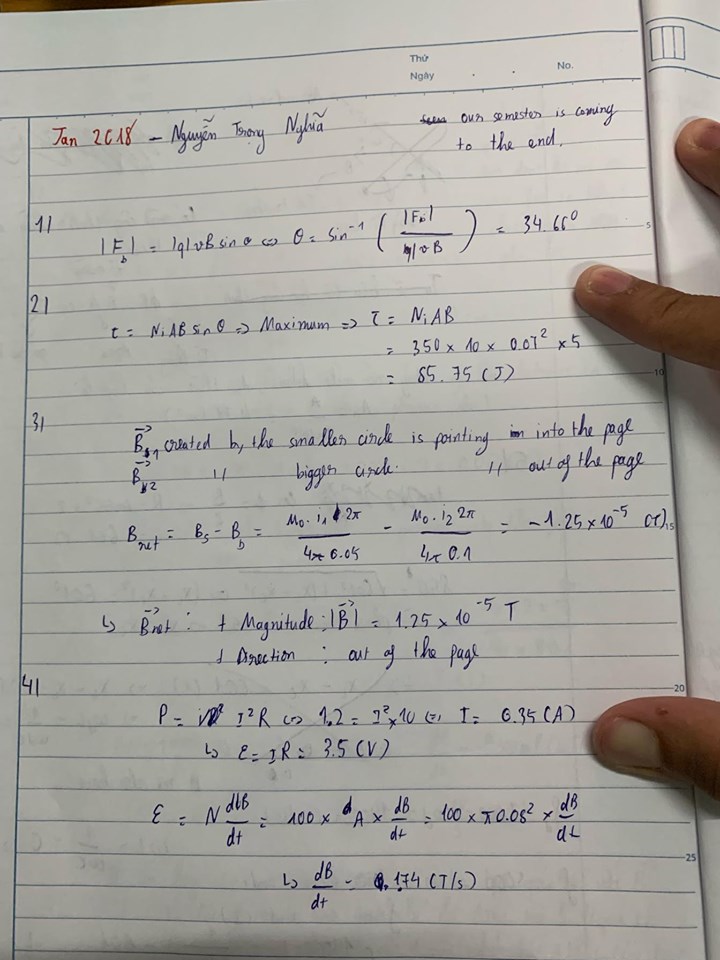 Thứ
Ngày . . No.
Jan 2018 – Nguyễn Trọng Nghĩa
our semester is coming
to the end.
1)
|F_b| = |q|vB sin θ ⇔ θ = sin⁻¹ ( |F_b| / |q|vB ) = 34.66°
5
2)
τ = NiAB sin θ ⇒ Maximum ⇒ τ = NiAB
= 350 × 10 × 0.07² × 5
= 85.75 (J)
10
3)
B⃗_s1 created by the smaller circle is pointing into the page
B⃗_s2 〃 bigger circle. 〃 out of the page
B_net = B_s – B_b = μ₀.i₁ 2π / 4π 0.05 – μ₀.i₂ 2π / 4π 0.1 = –1.25 × 10⁻⁵ (T)
15
↳ B⃗net : + Magnitude : |B⃗| = 1.25 × 10⁻⁵ T
+ Direction : out of the page
4)
20
P = I²R ⇔ 1.2 = I² × 10 ⇔ I = 0.35 (A)
↳ ε = IR = 3.5 (V)
ε = N dΦB / dt = 100 × A × dB / dt = 100 × π 0.08² × dB / dt
25
↳ dB / dt = 1.74 (T/s)